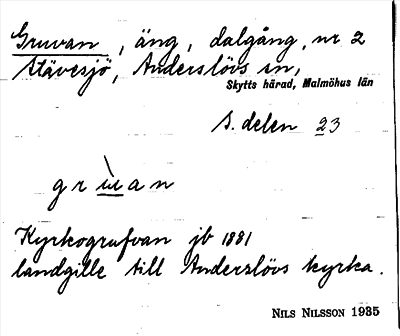 Gruvan, äng, dalgång, nr 2
Stävesjö, Anderslövs sn,
Skytts härad, Malmöhus län
S. delen 23
grùan
Kyrkografvan jb 1881
landgille till Anderslövs kyrka.
NILS NILSSON 1935